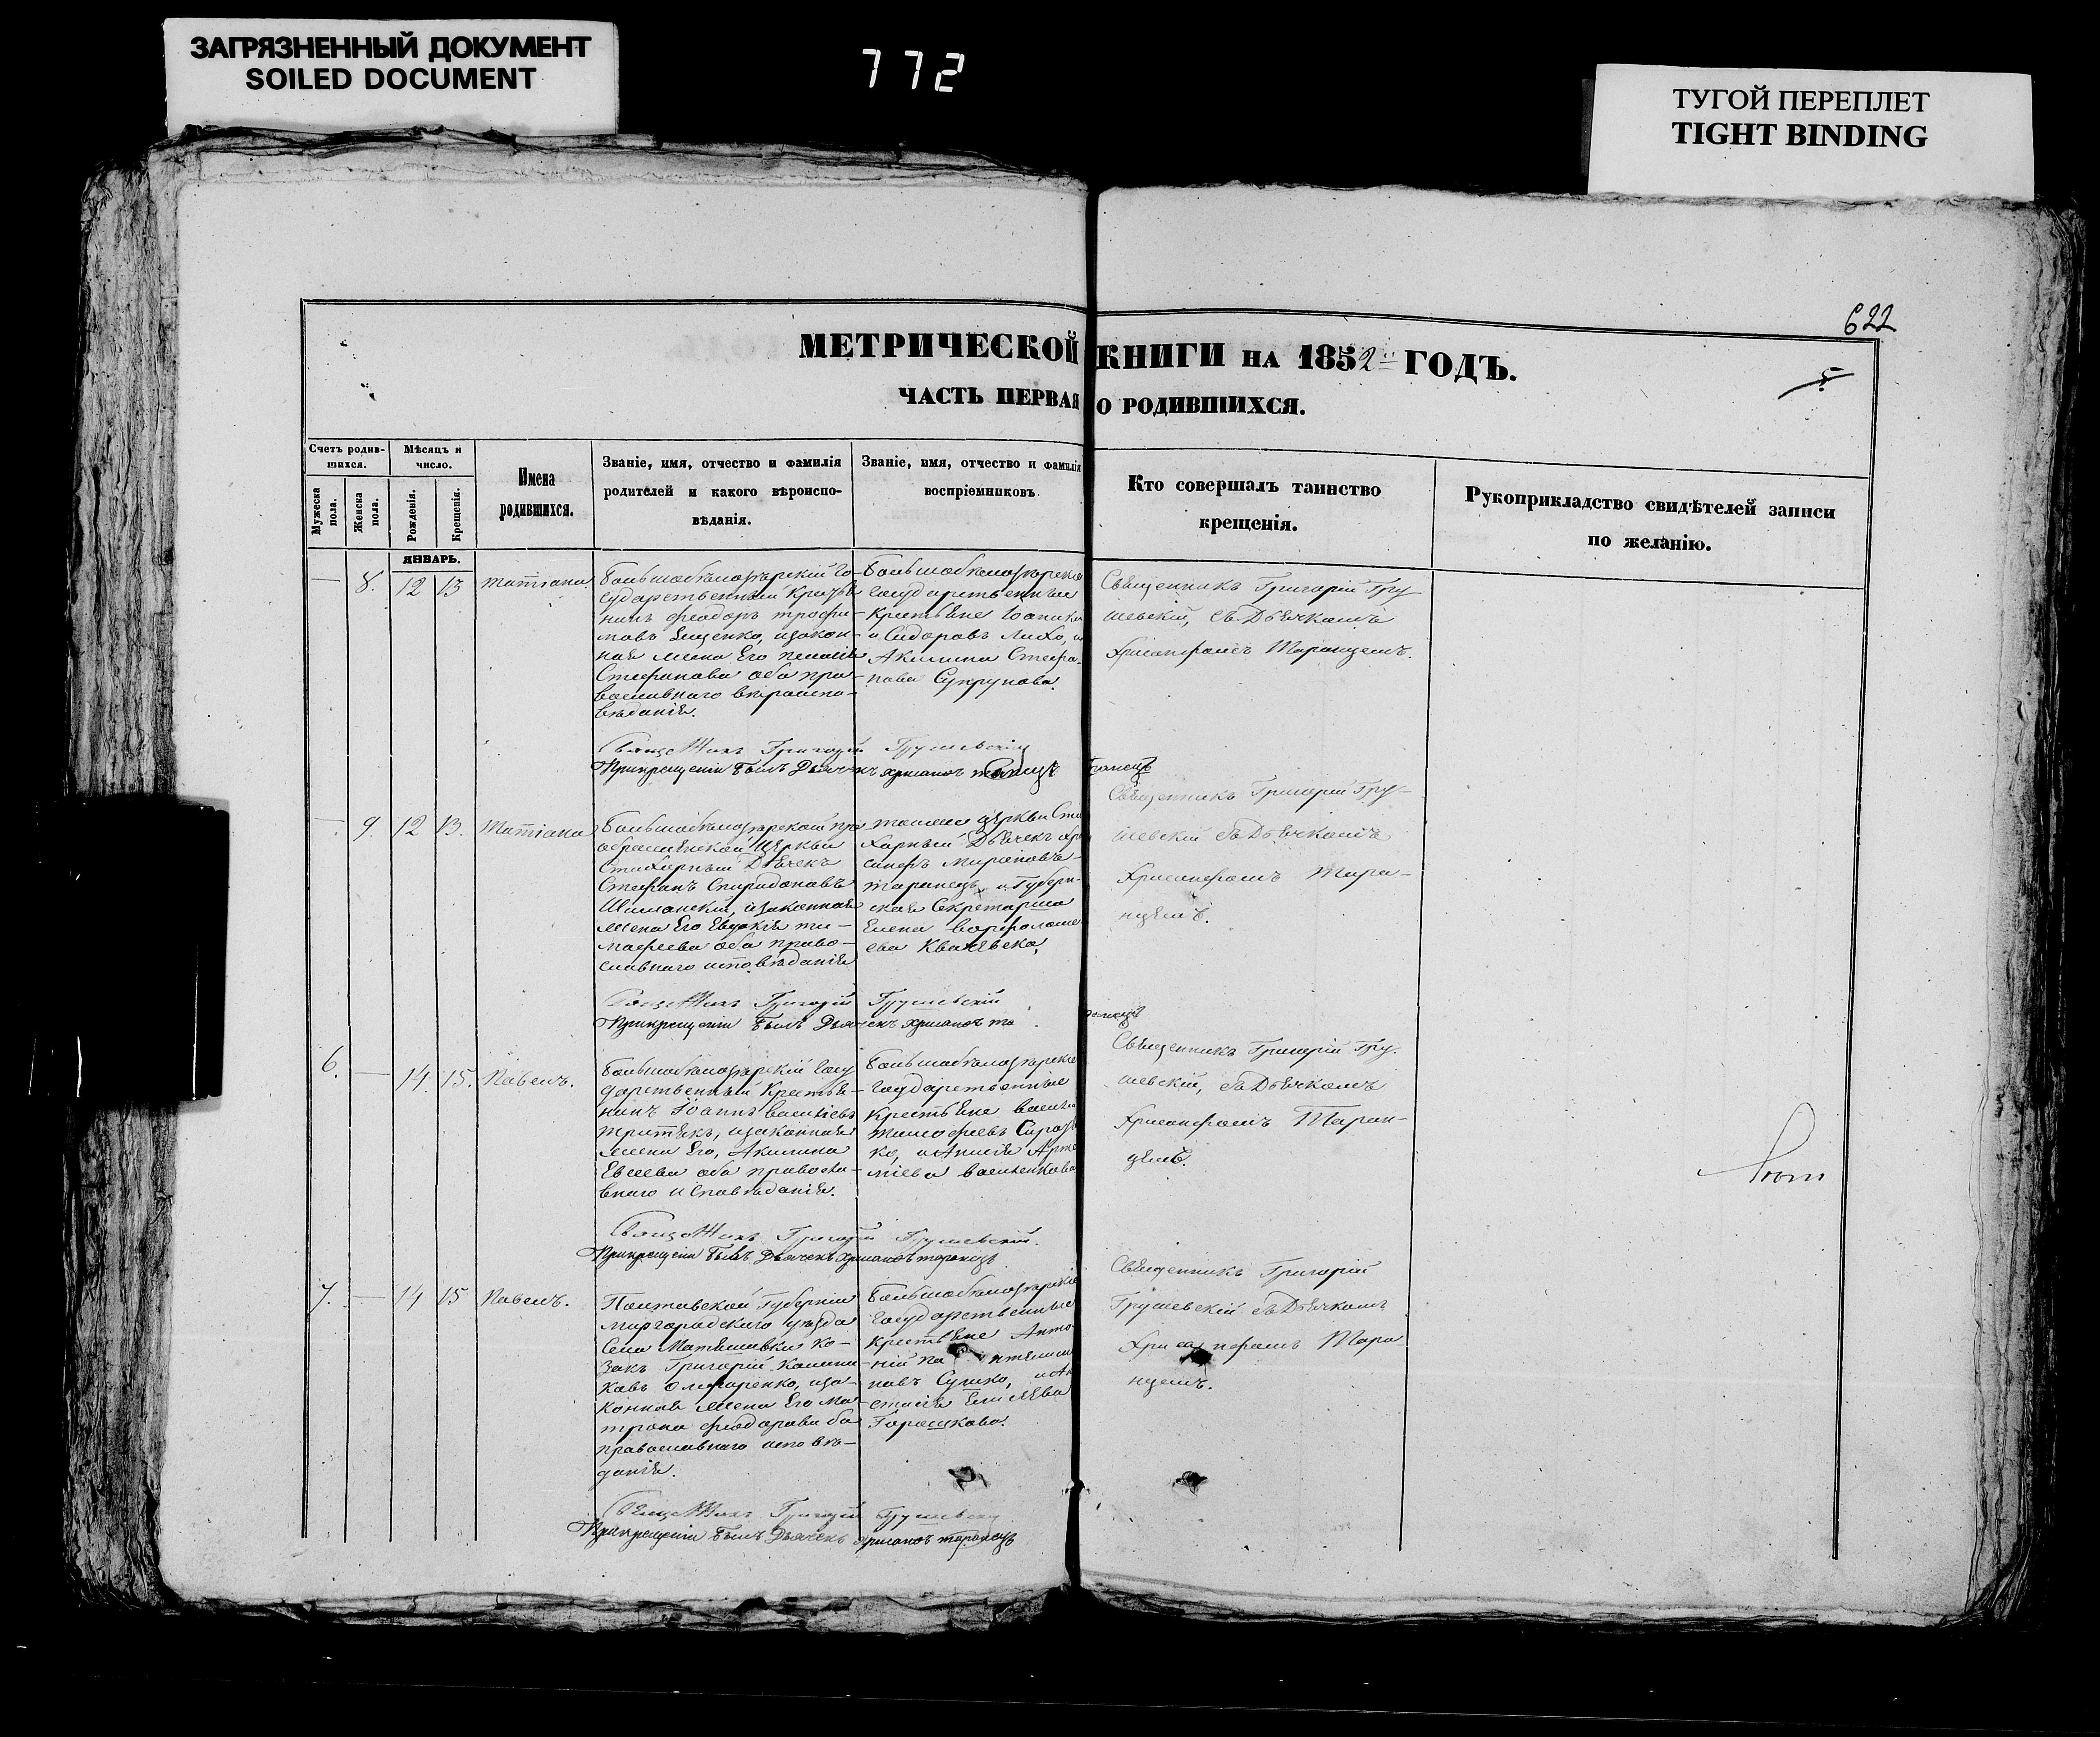 ЗАГРЯЗНЕННЫЙ ДОКУМЕНТ
SOILED DOCUMENT
772
ТУГОЙ ПЕРЕПЛЕТ
TIGHT BINDING
622
МЕТРИЧЕСКОЙ КНИГИ НА 1852 ГОДЪ.
5
ЧАСТЬ ПЕРВАЯ О РОДИВШИХСЯ.
Счетъ родив-
шихся.
Мужеска пола.
Женска пола.
Мѣсяцъ и
число.
Рожденія.
Крещенія.
Имена
родившихся.
Званіе, имя, отчество и фамилія
родителей и какого вѣроиспо-
вѣданія.
Званіе, имя, отчество и фамилія
воспріемниковъ.
Кто совершалъ таинство
крещенія.
Рукоприкладство свидѣтелей записи
по желанію.
ЯНВАРЬ.
— 8. 12 13 Татіана
Большобѣлозѣрскій Го-
сударственный Крестья
нинъ Феодоръ Трофи-
мовъ Ященко, изакон-
ная жена Его Пелагія
Стефанова оба пра-
вославнаго вѣроиспо-
вѣданія.
Большобѣлозѣрскіе
Государственные
Крестьяне Іоанникій
Сидоровъ Лихо, и
Акилина Стефа-
нова Сукрунова.
Священникъ Григорій Гру
шевскій, съ Дьячкомъ
Хрисанфомъ Таранцемъ.
Священникъ Григорій Грушевскій
При крещеніи былъ Дьячекъ Хрисанфъ Таранецъ
— 9. 12 13. Татіана
Большобѣлозѣрской Пре
ображенской Церкви
Стихарный Дьячекъ
Стефанъ Спиридоновъ
Шиманскій, изаконная
жена Его Евдокія Ти-
мофеева оба право-
славнаго исповѣданія
тойже церкви Сти
харный Дьячекъ Хри
санфъ Мироновъ
Таранецъ, и Губерн-
ская Секретарша
Елена Варфоломе
ева
Священникъ Григорій Гру-
шевскій съ Дьячкомъ
Хрисанфомъ Тара-
нцемъ.
Священникъ Григорій Грушевскій
При крещеніи былъ Дьячекъ Хрисанфъ Таранецъ
6. — 14. 15. Павелъ.
Большобѣлозѣрскій Госу
дарственный Крестья-
нинъ Іоаннъ Васильевъ
Третякъ, изаконная
жена Его, Акилина
Евсеева оба правосла-
внаго исповѣданія.
Большобѣлозѣрскіе
Государственные
Крестьяне Василій
Тимофеевъ Сироз
ко, и Анисія Арте
міева Василенкова
Священникъ Григорій Гру.
шевскій, съ Дьячкомъ
Хрисанфомъ Таран-
цемъ.
Священникъ Григорій Грушевскій.
При крещеніи былъ Дьячекъ Хрисанфъ Таранецъ
7. — 14 15 Павелъ.
Полтавской Губерніи
Миргородскаго уѣзда
Села Матяшовки Ко-
закъ Григорій Калини
ковъ Олифиренко, иза-
конная жена Его Ма-
трона Феодорова оба
православнаго исповѣ-
данія.
Большобѣлозѣрскіе
Государственные
Крестьяне Анто-
ній Пантелимо
новъ Сушко, и Ана
стасія Елисѣева
Горошкова.
Священникъ Григорій
Грушевскій съ Дьячкомъ
Хрисанфомъ Тара-
нцемъ.
Священникъ Григорій Грушевскій
При крещеніи былъ Дьячекъ Хрисанфъ Таранецъ